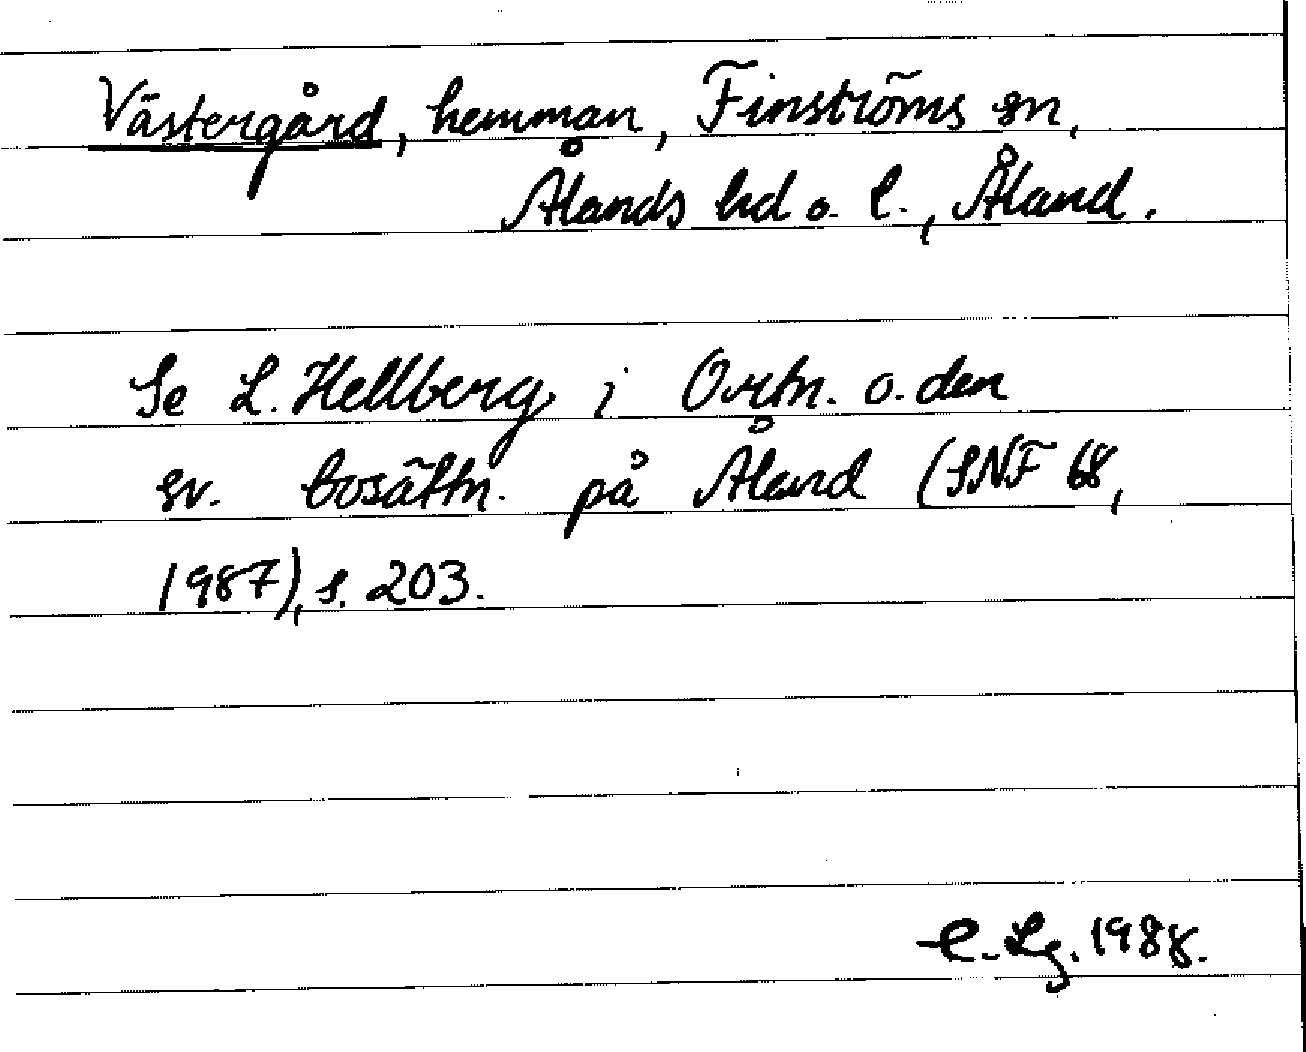 Västergård, hemman, Finströms sn,
Ålands hd o. l., Åland.
Se L. Hellberg i Ortn. o. den
sv. bosättn. på Åland (SNF 68,
1987), s. 203.
C. Lg. 1988.